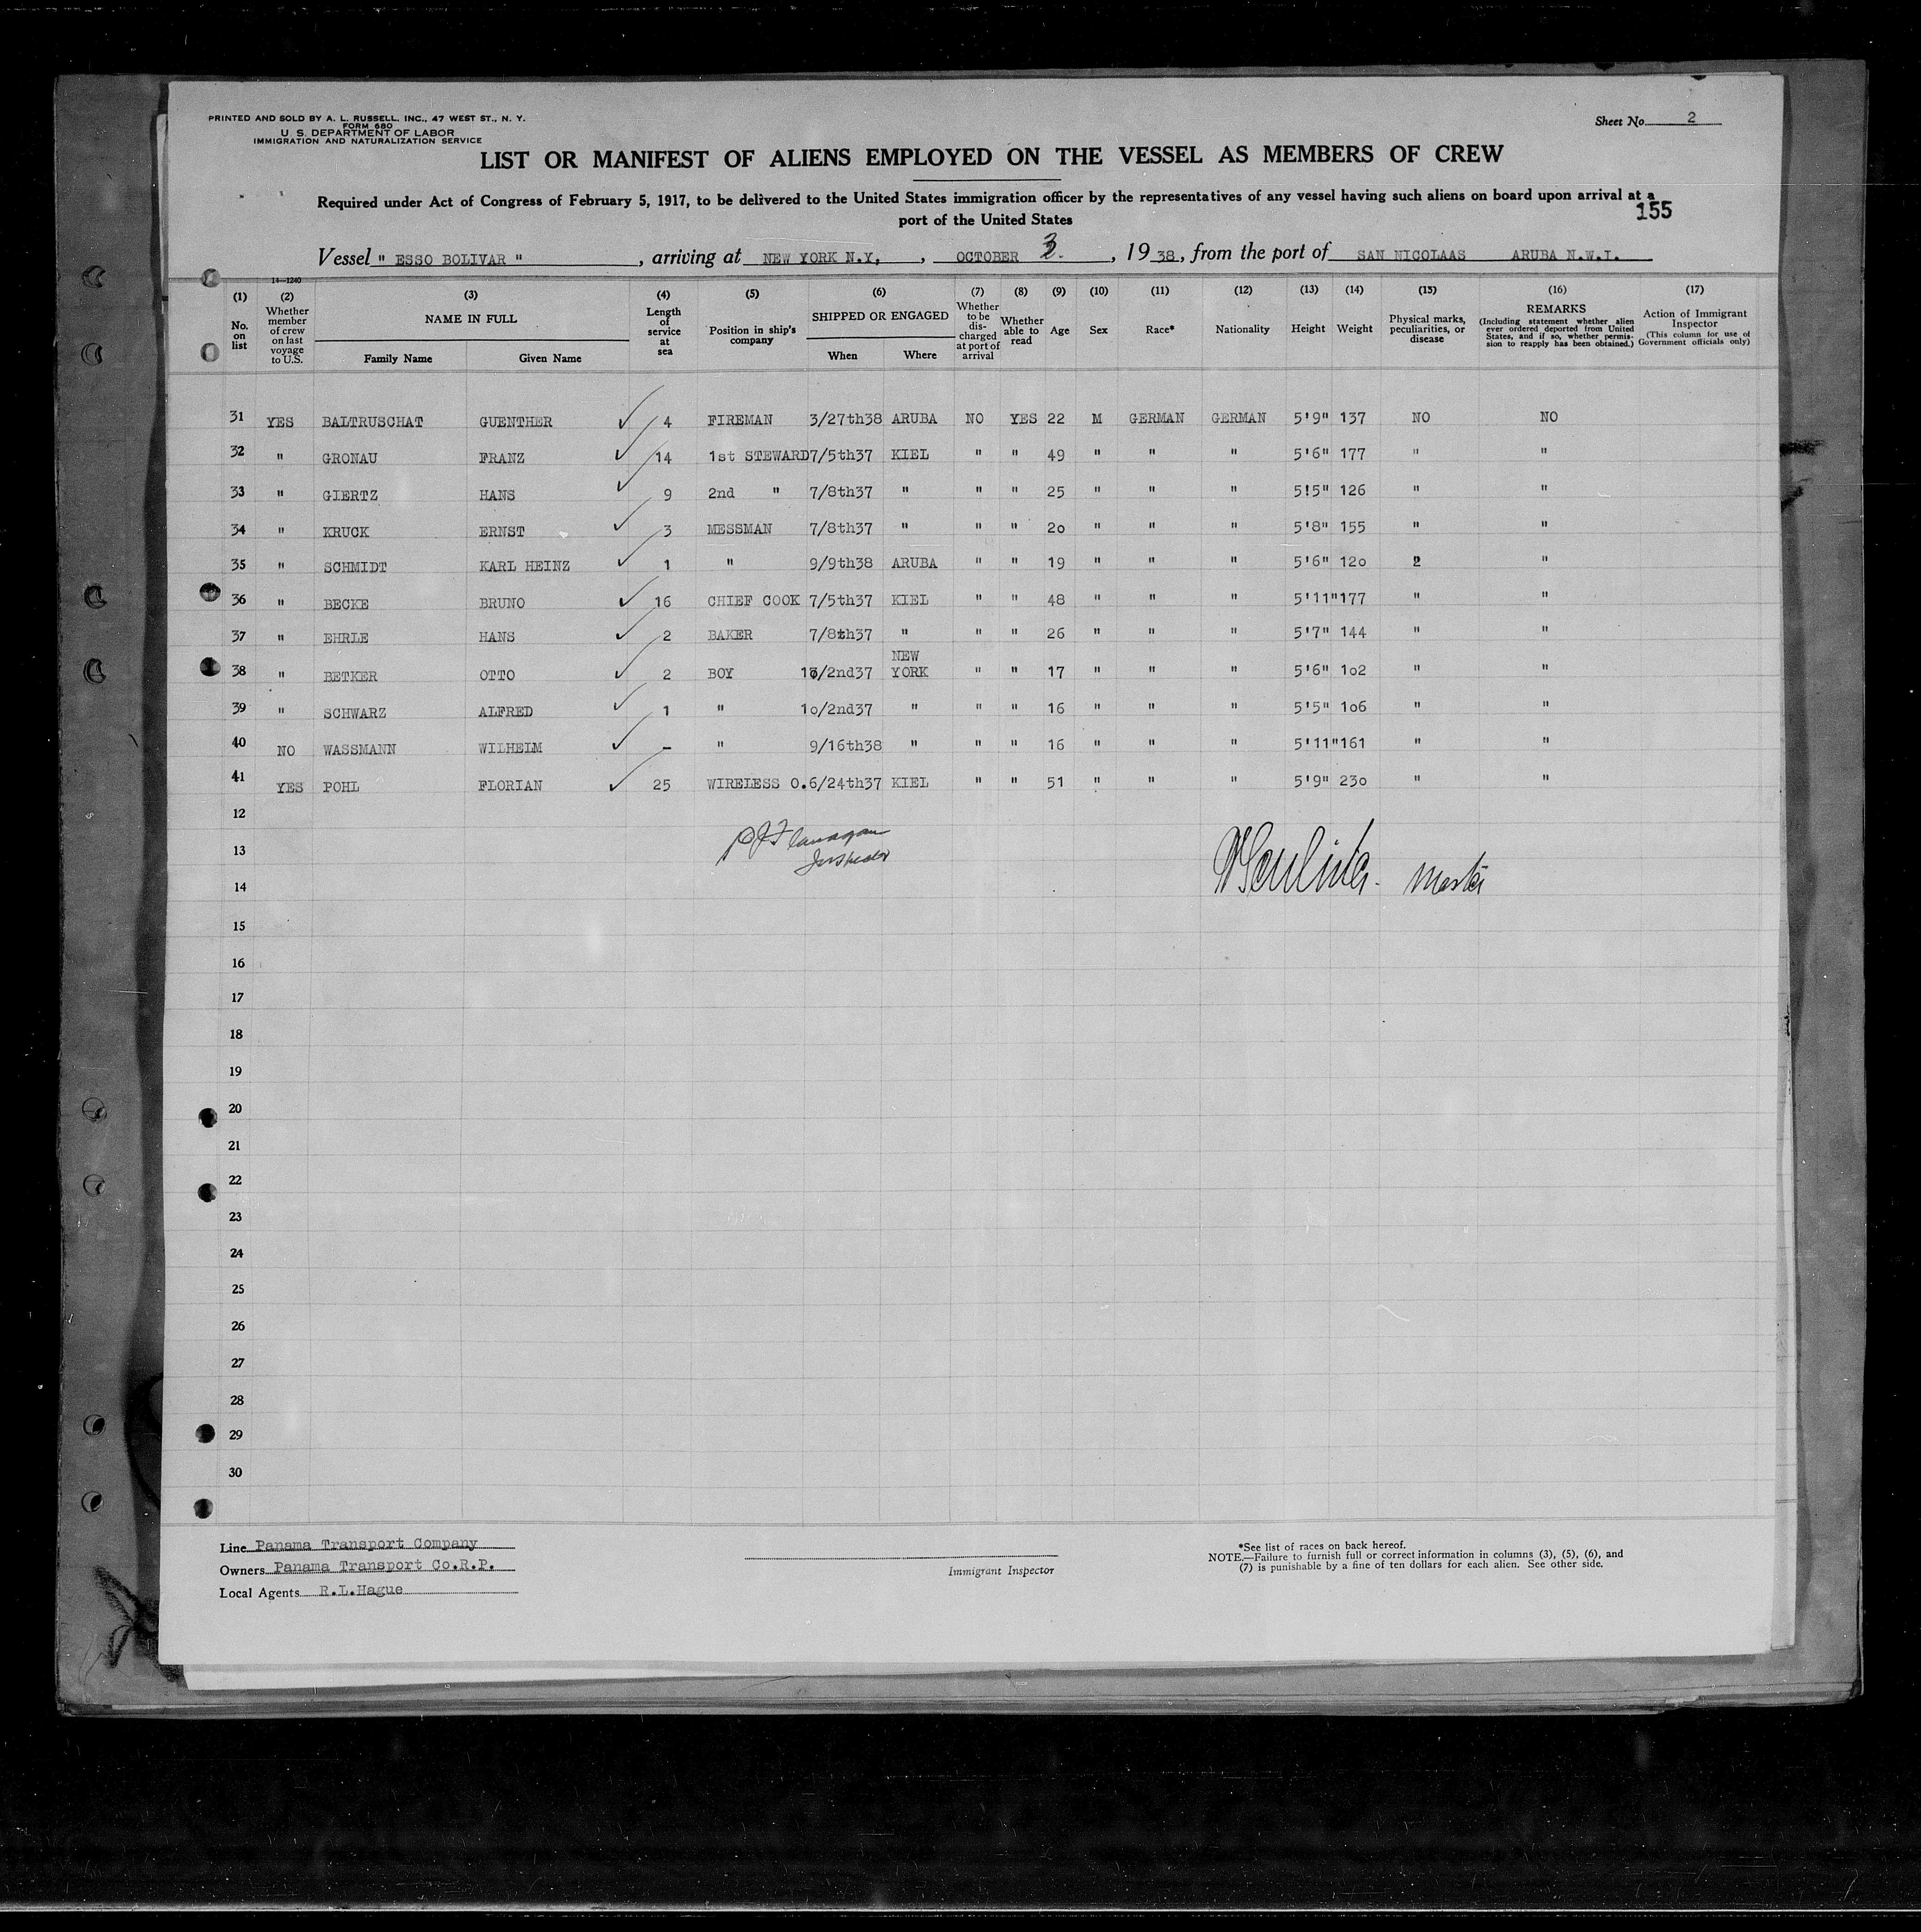 PRINTED AND SOLD BY A. L. RUSSELL, INC., 47 WEST ST., N. Y.
FORM 680
U. S. DEPARTMENT OF LABOR
IMMIGRATION AND NATURALIZATION SERVICE
Sheet No. 2
LIST OR MANIFEST OF ALIENS EMPLOYED ON THE VESSEL AS MEMBERS OF CREW
Required under Act of Congress of February 5, 1917, to be delivered to the United States immigration officer by the representatives of any vessel having such aliens on board upon arrival at a
port of the United States
155
Vessel " ESSO BOLIVAR " , arriving at NEW YORK N.Y, , OCTOBER 3. , 19 38, from the port of SAN NICOLAAS ARUBA N.W.I.
14—1240
(1) (2) (3) (4) (5) (6) (7) (8) (9) (10) (11) (12) (13) (14) (15) (16) (17)
No. on list
Whether member of crew on last voyage to U.S.
NAME IN FULL
Family Name Given Name
Length of service at sea
Position in ship's company
SHIPPED OR ENGAGED
When Where
Whether to be discharged at port of arrival
Whether able to read
Age
Sex
Race*
Nationality
Height
Weight
Physical marks, peculiarities, or disease
REMARKS
(Including statement whether alien ever ordered deported from United States, and if so, whether permission to reapply has been obtained.)
Action of Immigrant Inspector
(This column for use of Government officials only)
31 YES BALTRUSCHAT GUENTHER 4 FIREMAN 3/27th38 ARUBA NO YES 22 M GERMAN GERMAN 5'9" 137 NO NO
32 " GRONAU FRANZ 14 1st STEWARD 7/5th37 KIEL " " 49 " " " 5'6" 177 " "
33 " GIERTZ HANS 9 2nd " 7/8th37 " " " 25 " " " 5'5" 126 " "
34 " KRUCK ERNST 3 MESSMAN 7/8th37 " " " 20 " " " 5'8" 155 " "
35 " SCHMIDT KARL HEINZ 1 " 9/9th38 ARUBA " " 19 " " " 5'6" 120 "
36 " BECKE BRUNO 16 CHIEF COOK 7/5th37 KIEL " " 48 " " " 5'11" 177 " "
37 " EHRLE HANS 2 BAKER 7/8th37 " " " 26 " " " 5'7" 144 " "
38 " BETKER OTTO 2 BOY 10/2nd37 NEW YORK " " 17 " " " 5'6" 102 " "
39 " SCHWARZ ALFRED 1 " 10/2nd37 " " " 16 " " " 5'5" 106 " "
40 NO WASSMANN WILHELM – " 9/16th38 " " " 16 " " " 5'11" 161 " "
41 YES POHL FLORIAN 25 WIRELESS O. 6/24th37 KIEL " " 51 " " " 5'9" 230 " "
12
13
14
PJ Flanagan
Inspector
Master
15
16
17
18
19
20
21
22
23
24
25
26
27
28
29
30
Line Panama Transport Company
Owners Panama Transport Co.R.P.
Local Agents R.L.Hague
Immigrant Inspector
*See list of races on back hereof.
NOTE.—Failure to furnish full or correct information in columns (3), (5), (6), and
(7) is punishable by a fine of ten dollars for each alien. See other side.